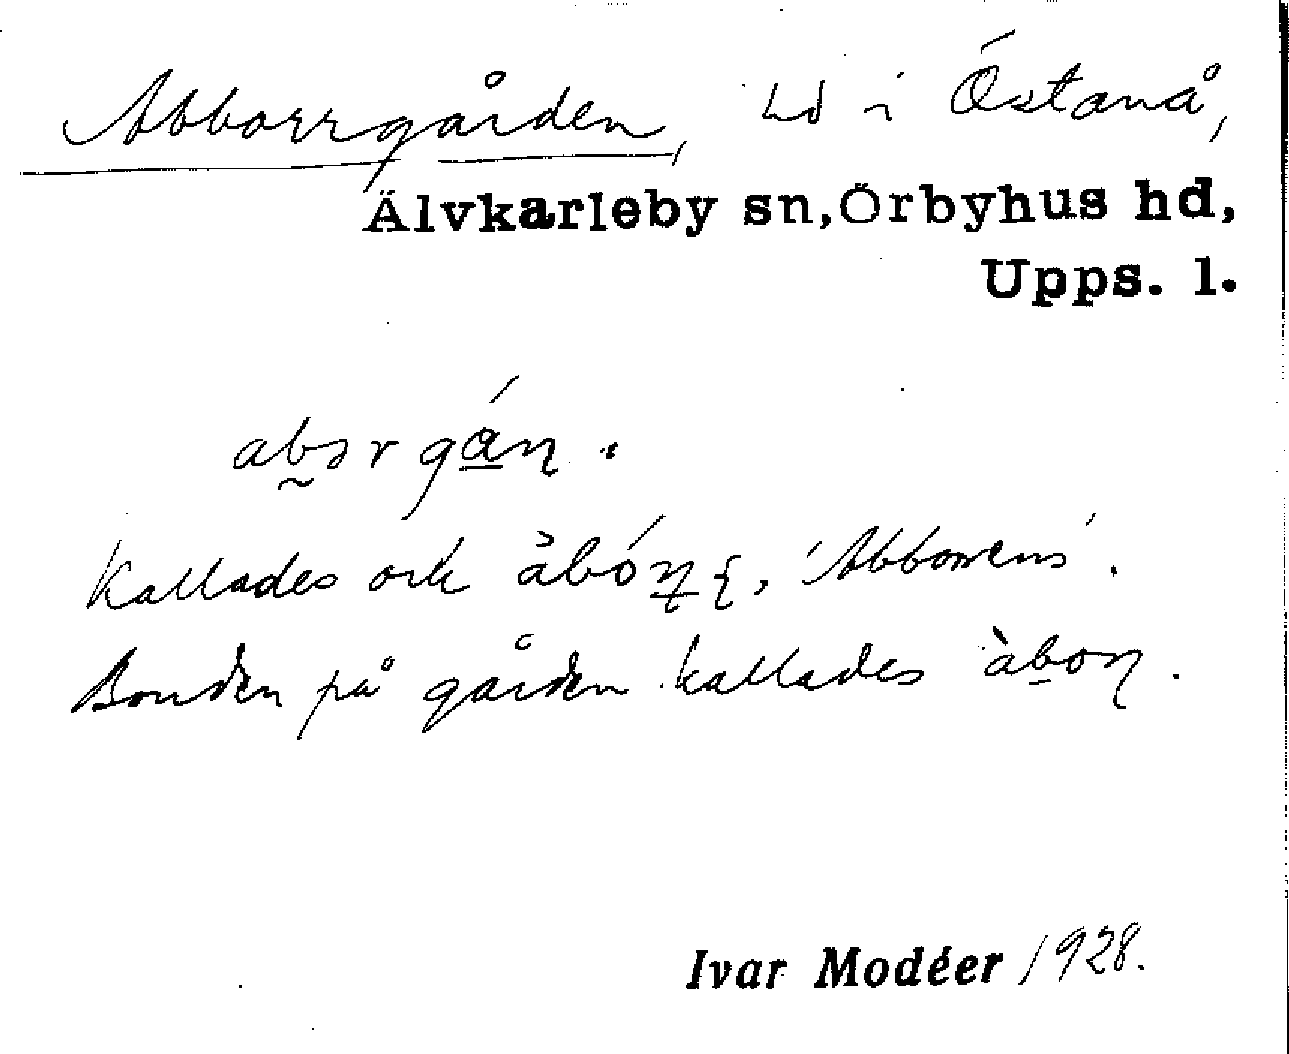 Abborrgården, hd i Östanå,
Älvkarleby sn, Örbyhus hd,
Upps. l.
Kallades ock 'Abborrens'.
Bonden på gården kallades
Ivar Modéer 1928.